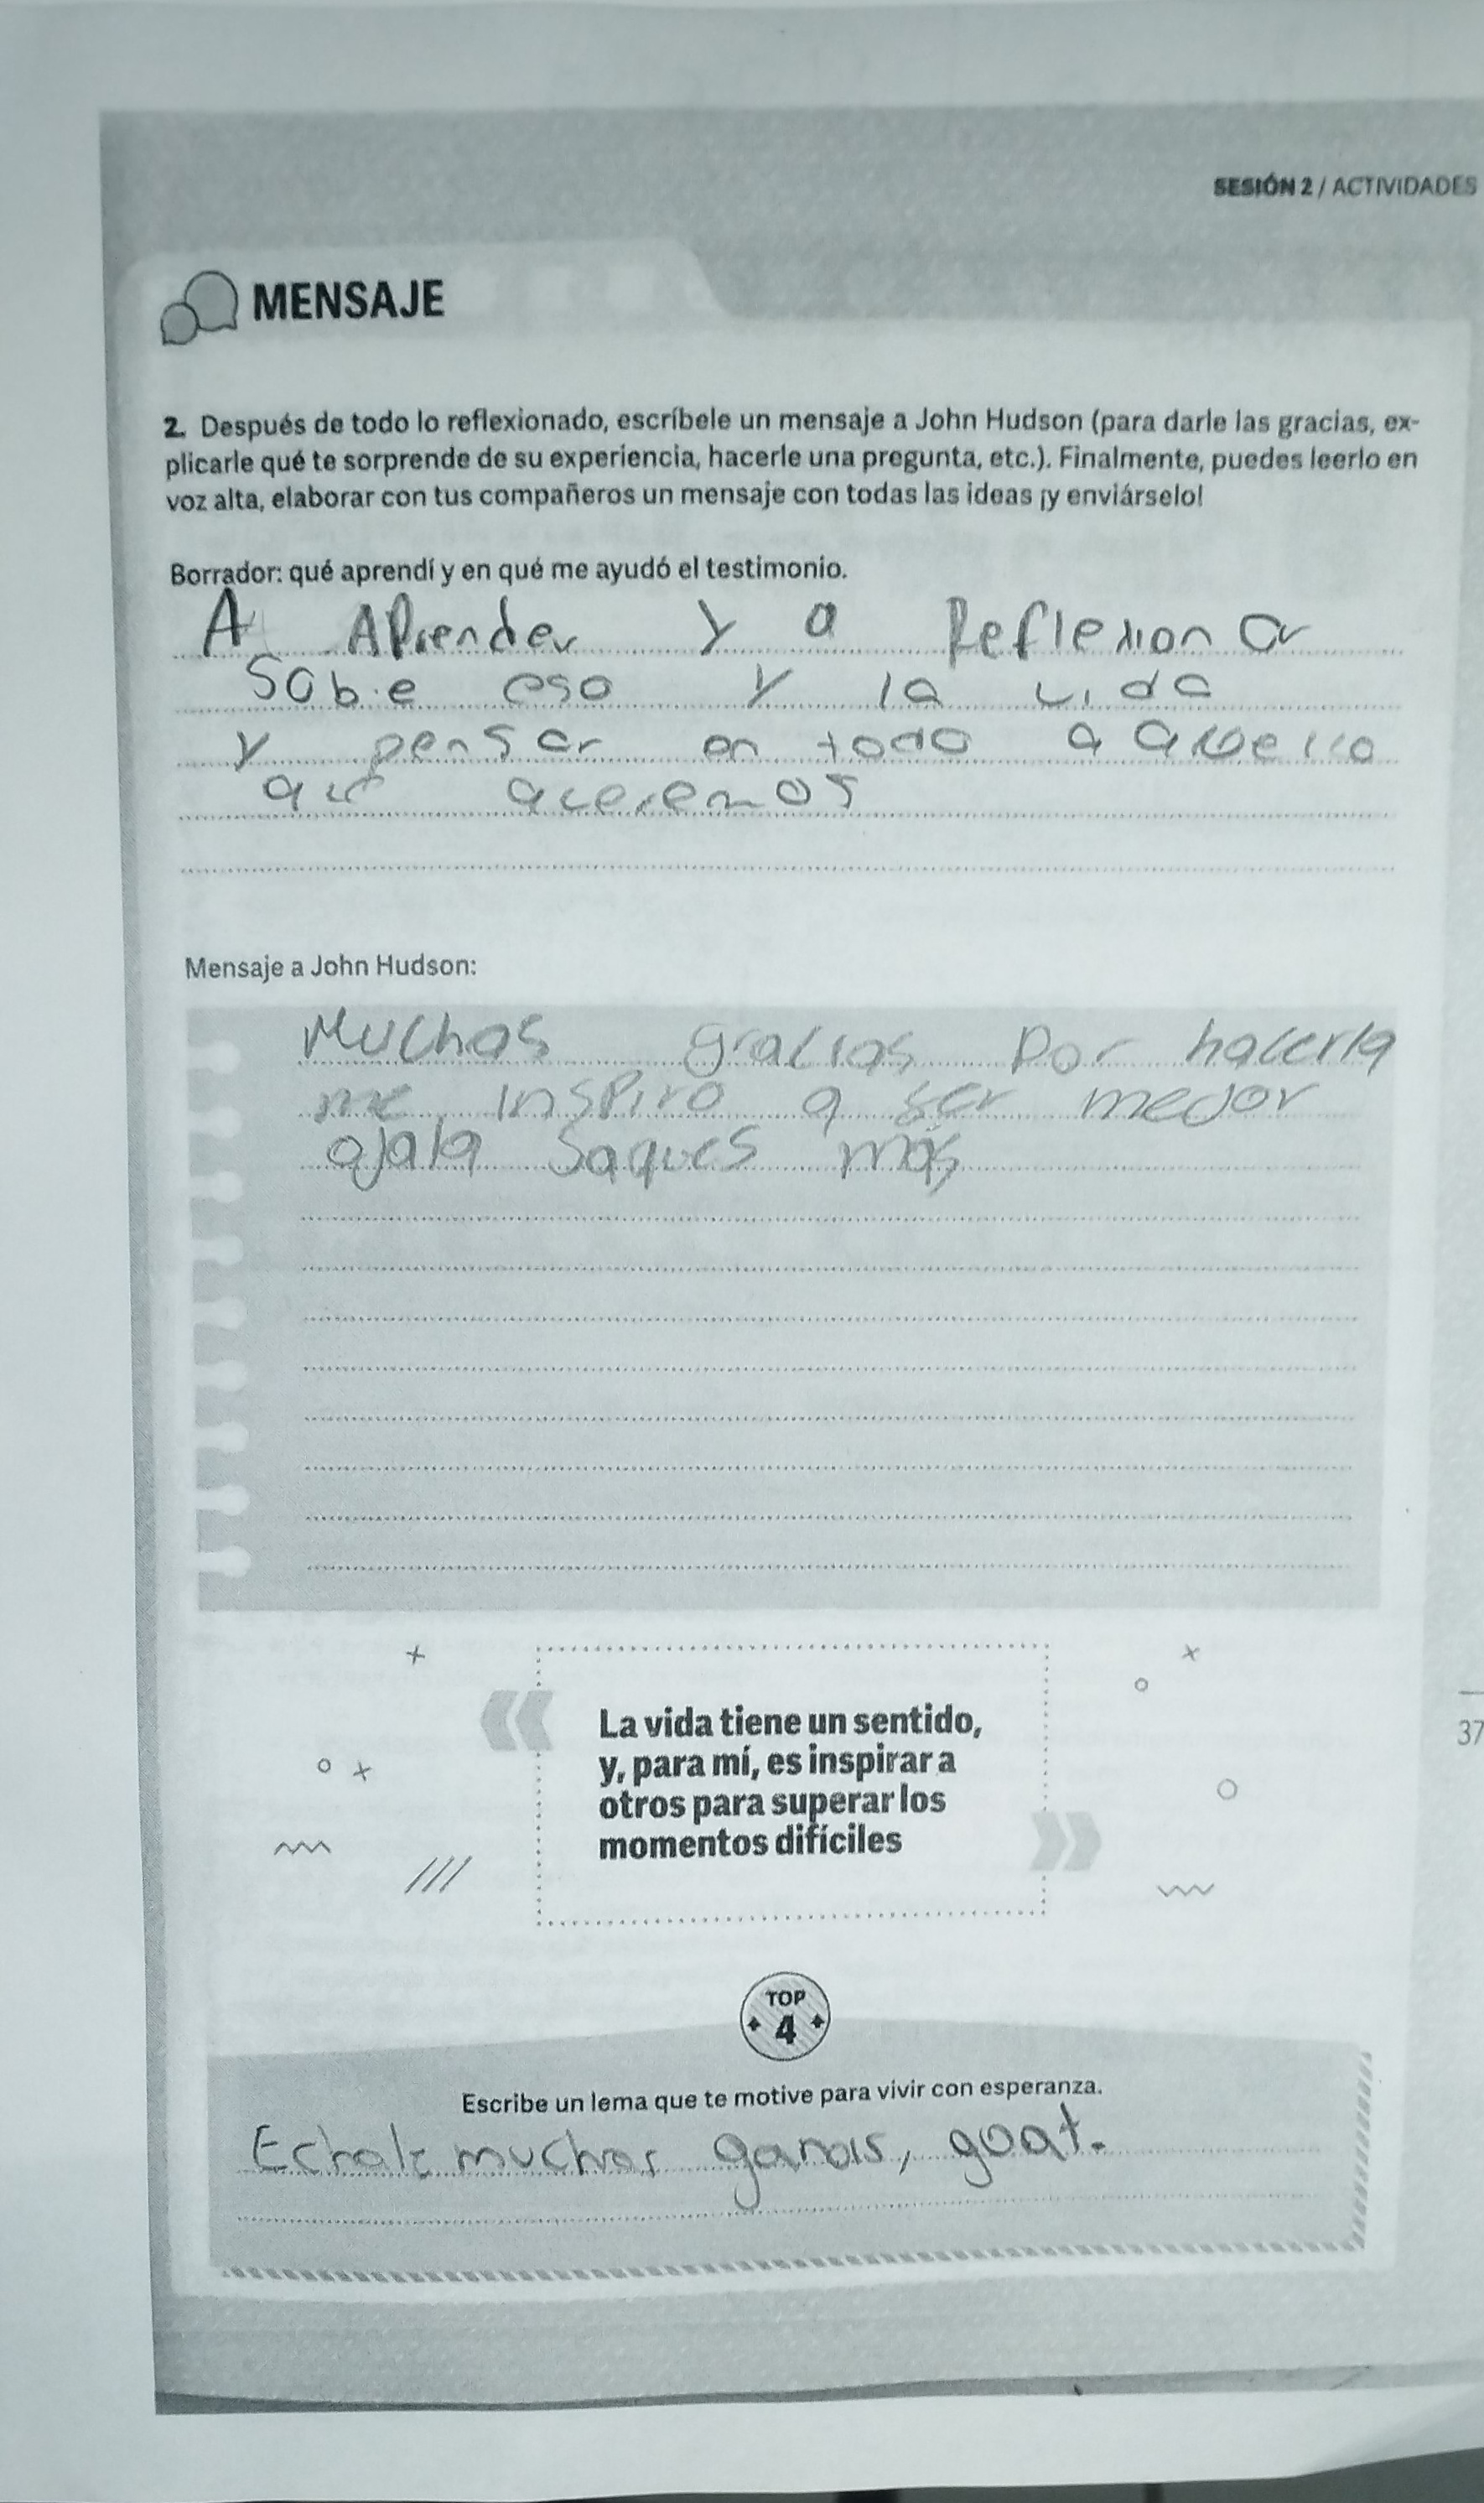 SESIÓN 2 / ACTIVIDADES
MENSAJE
2. Después de todo lo reflexionado, escríbele un mensaje a John Hudson (para darle las gracias, ex-
plicarle qué te sorprende de su experiencia, hacerle una pregunta, etc.). Finalmente, puedes leerlo en
voz alta, elaborar con tus compañeros un mensaje con todas las ideas ¡y enviárselo!
Borrador: qué aprendí y en qué me ayudó el testimonio.
A Aprender y a Reflexionar
Sobre eso y la vida
y pensar en todo a
que
Mensaje a John Hudson:
Muchas gracias por hacerla
me inspiro a ser mejor
ojala saques más
La vida tiene un sentido,
y, para mí, es inspirar a
otros para superar los
momentos difíciles
37
TOP
4
Escribe un lema que te motive para vivir con esperanza.
Echale muchas ganas, goat.